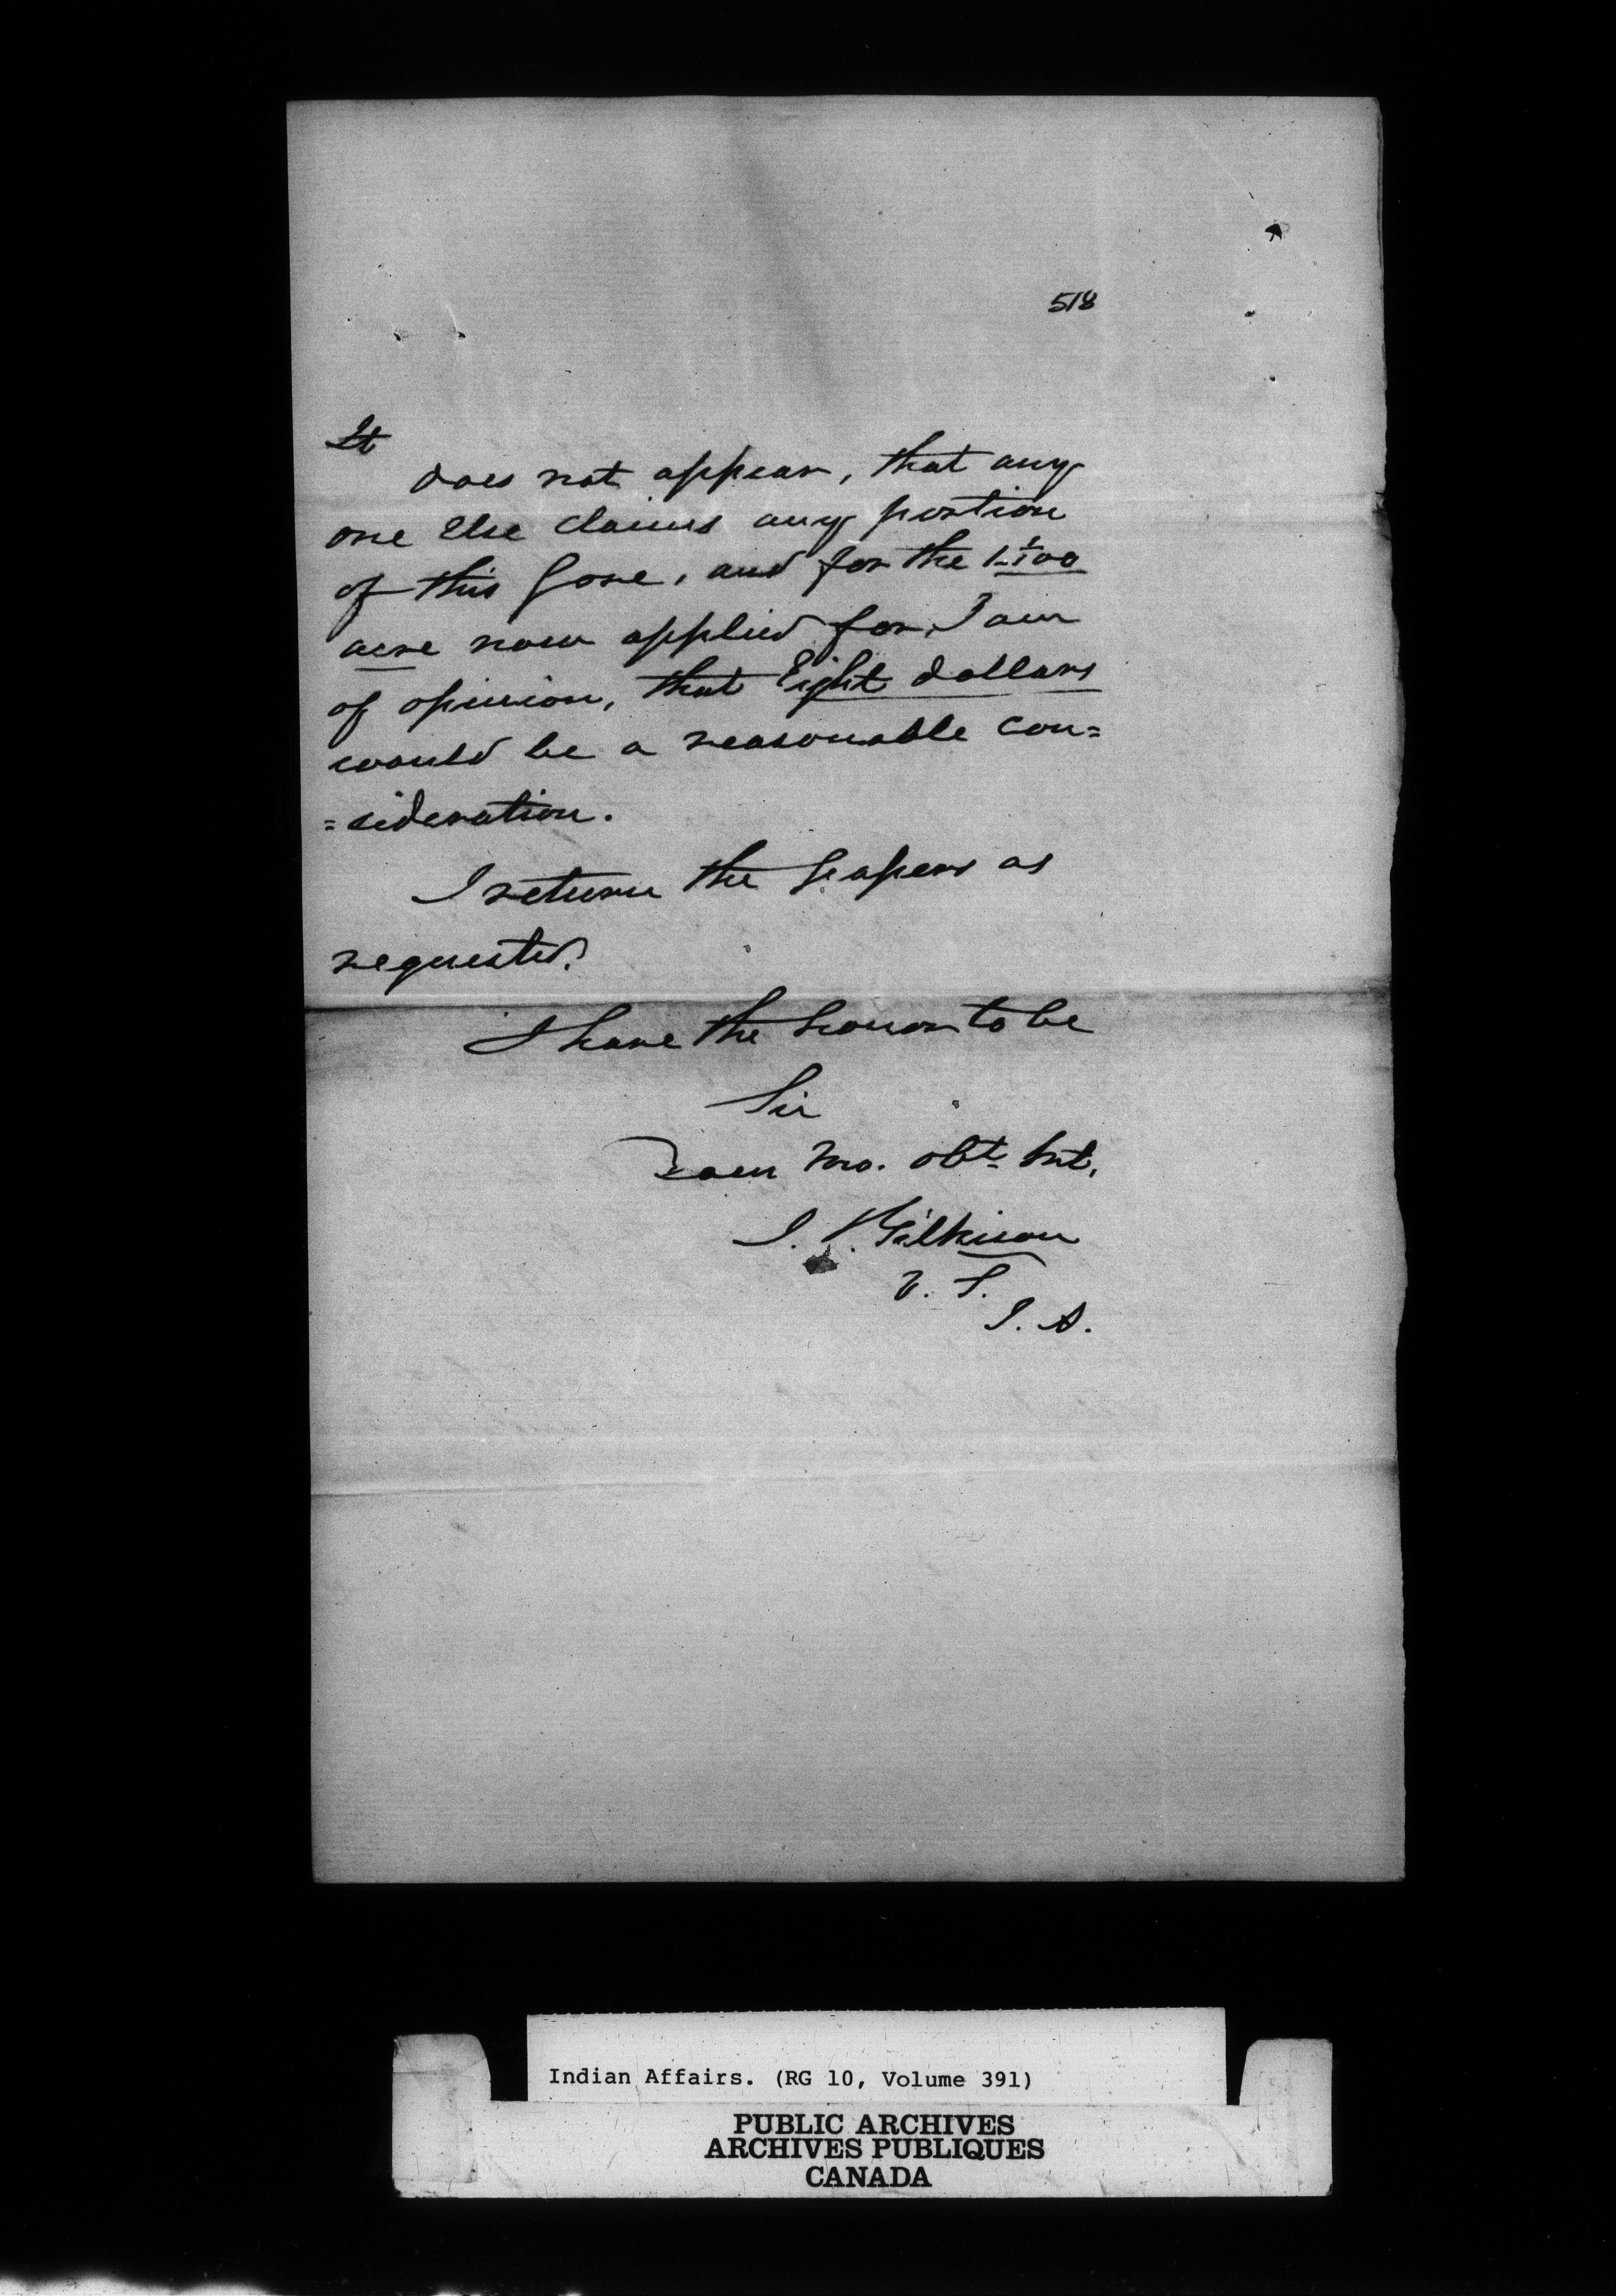 518
It
does not appear, that any
one Else claims any portion
of this Gore, and for the
acre now applied for, I am
of opinion, that Eight dollars
would be a reasonable con=
=sideration.
I return the papers as
requested.
I have the honor to be
Sir
Your mo. obt. Svt.
J. T. Gilkison
V. S.
I. A.
Indian Affairs. (RG 10, Volume 391)
PUBLIC ARCHIVES
ARCHIVES PUBLIQUES
CANADA